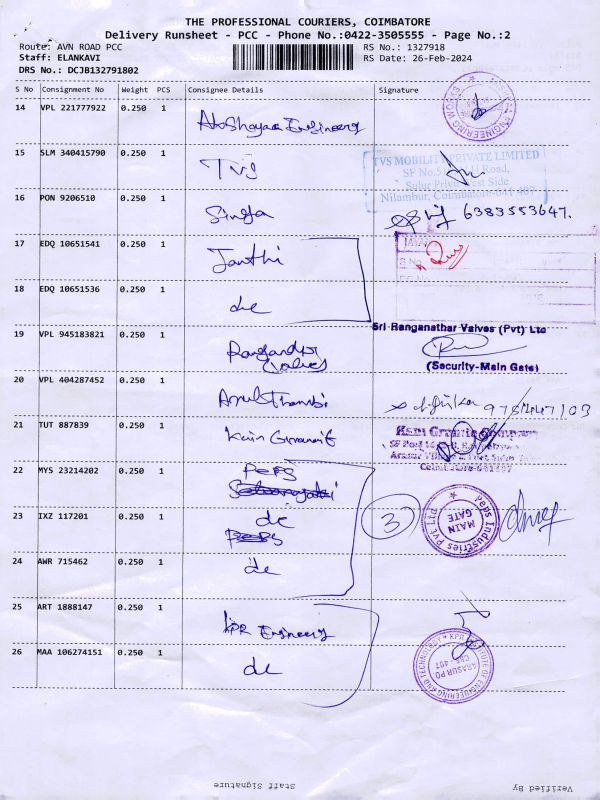 THE PROFESSIONAL COURIERS, COIMBATORE
Delivery Runsheet - PCC - Phone No.:0422-3505555 - Page No.:2
Route: AVN ROAD PCC RS No.: 1327918
Staff: ELANKAVI RS Date: 26-Feb-2024
DRS No.: DCJB132791802
S No Consignment No Weight PCS Consignee Details Signature
14 VPL 221777922 0.250 1 Akshayaa Engineering
ENGINEERING WORKS
15 SLM 340415790 0.250 1 TVS
TVS MOBILITY PRIVATE LIMITED
SF No.
Road,
Side
Nilambur, Coimbatore
16 PON 9206510 0.250 1 Singa 6383553647.
17 EDQ 10651541 0.250 1 Janthi
S No
18 EDQ 10651536 0.250 1 do
19 VPL 945183821 0.250 1 Ranganathar (valves)
Sri Ranganathar Valves (Pvt) Ltd
(Security-Main Gate)
20 VPL 404287452 0.250 1 Arul Thambi
21 TUT 887839 0.250 1 Kain Granit
22 MYS 23214202 0.250 1 PEPS
23 IXZ 117201 0.250 1 do
3
Peps Industries Pvt Ltd
MAIN GATE
24 AWR 715462 0.250 1 do
25 ART 1888147 0.250 1 KPR Engineering
26 MAA 106274151 0.250 1 do
KPR INSTITUTE OF ENGINEERING AND TECHNOLOGY
ARASUR PO
CBE - 407
Staff Signature Verified By